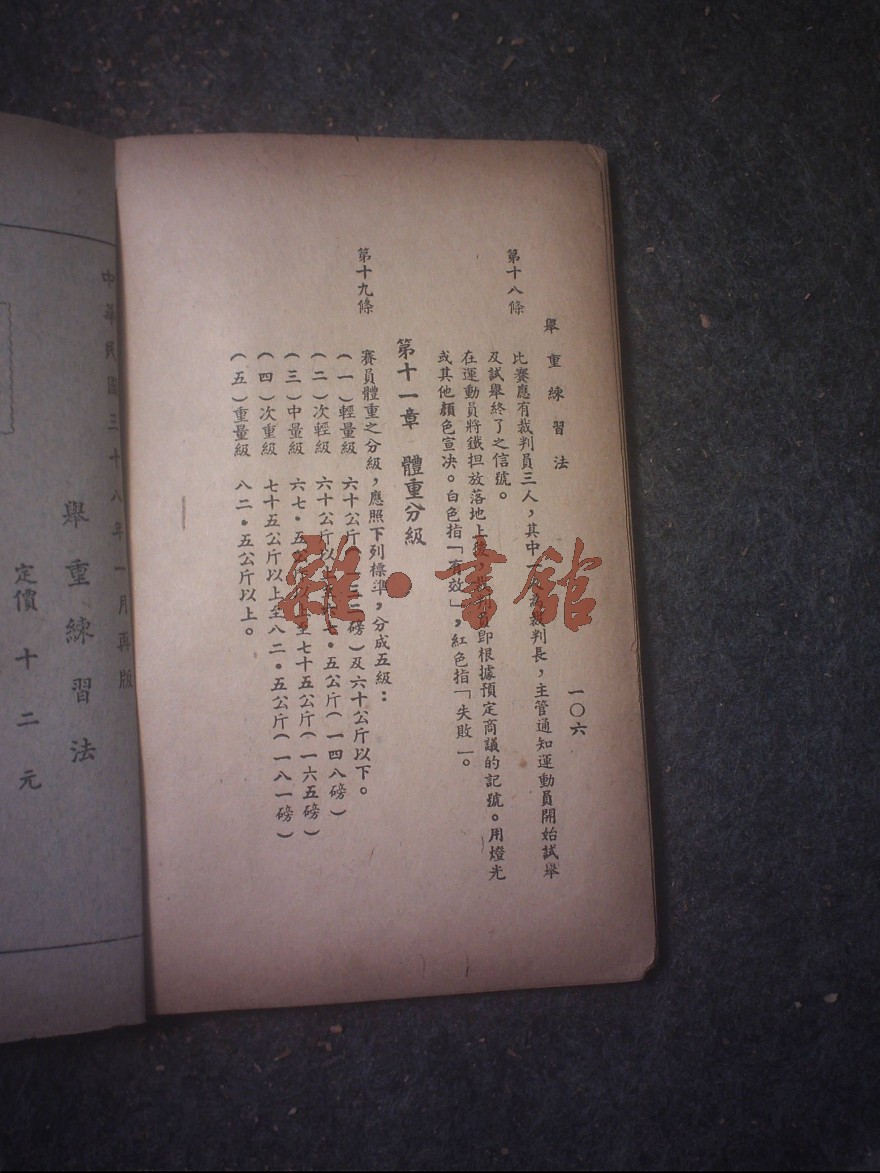 舉重練習法
一〇六
第十八條
比賽應有裁判員三人，其中一裁判長，主管通知運動員開始試舉
及試舉終了之信號。
在運動員將鐵担放落地上後，裁判員即根據預定商議的記號。用燈光
或其他顏色宣决。白色指「有效」，紅色指「失敗」。
第十一章 體重分級
第十九條
賽員體重之分級，應照下列標準，分成五級：
(一)輕量級 六十公斤(一三二磅)及六十公斤以下。
(二)次輕級 六十公斤以上至 七・五公斤(一四八磅)
(三)中量級 六七・五公斤以上至七十五公斤(一六五磅)
(四)次重級 七十五公斤以上至八二・五公斤(一八一磅)
(五)重量級 八二・五公斤以上。
雜・書館
中華民國三十八年一月再版
舉重練習法
定價十二元